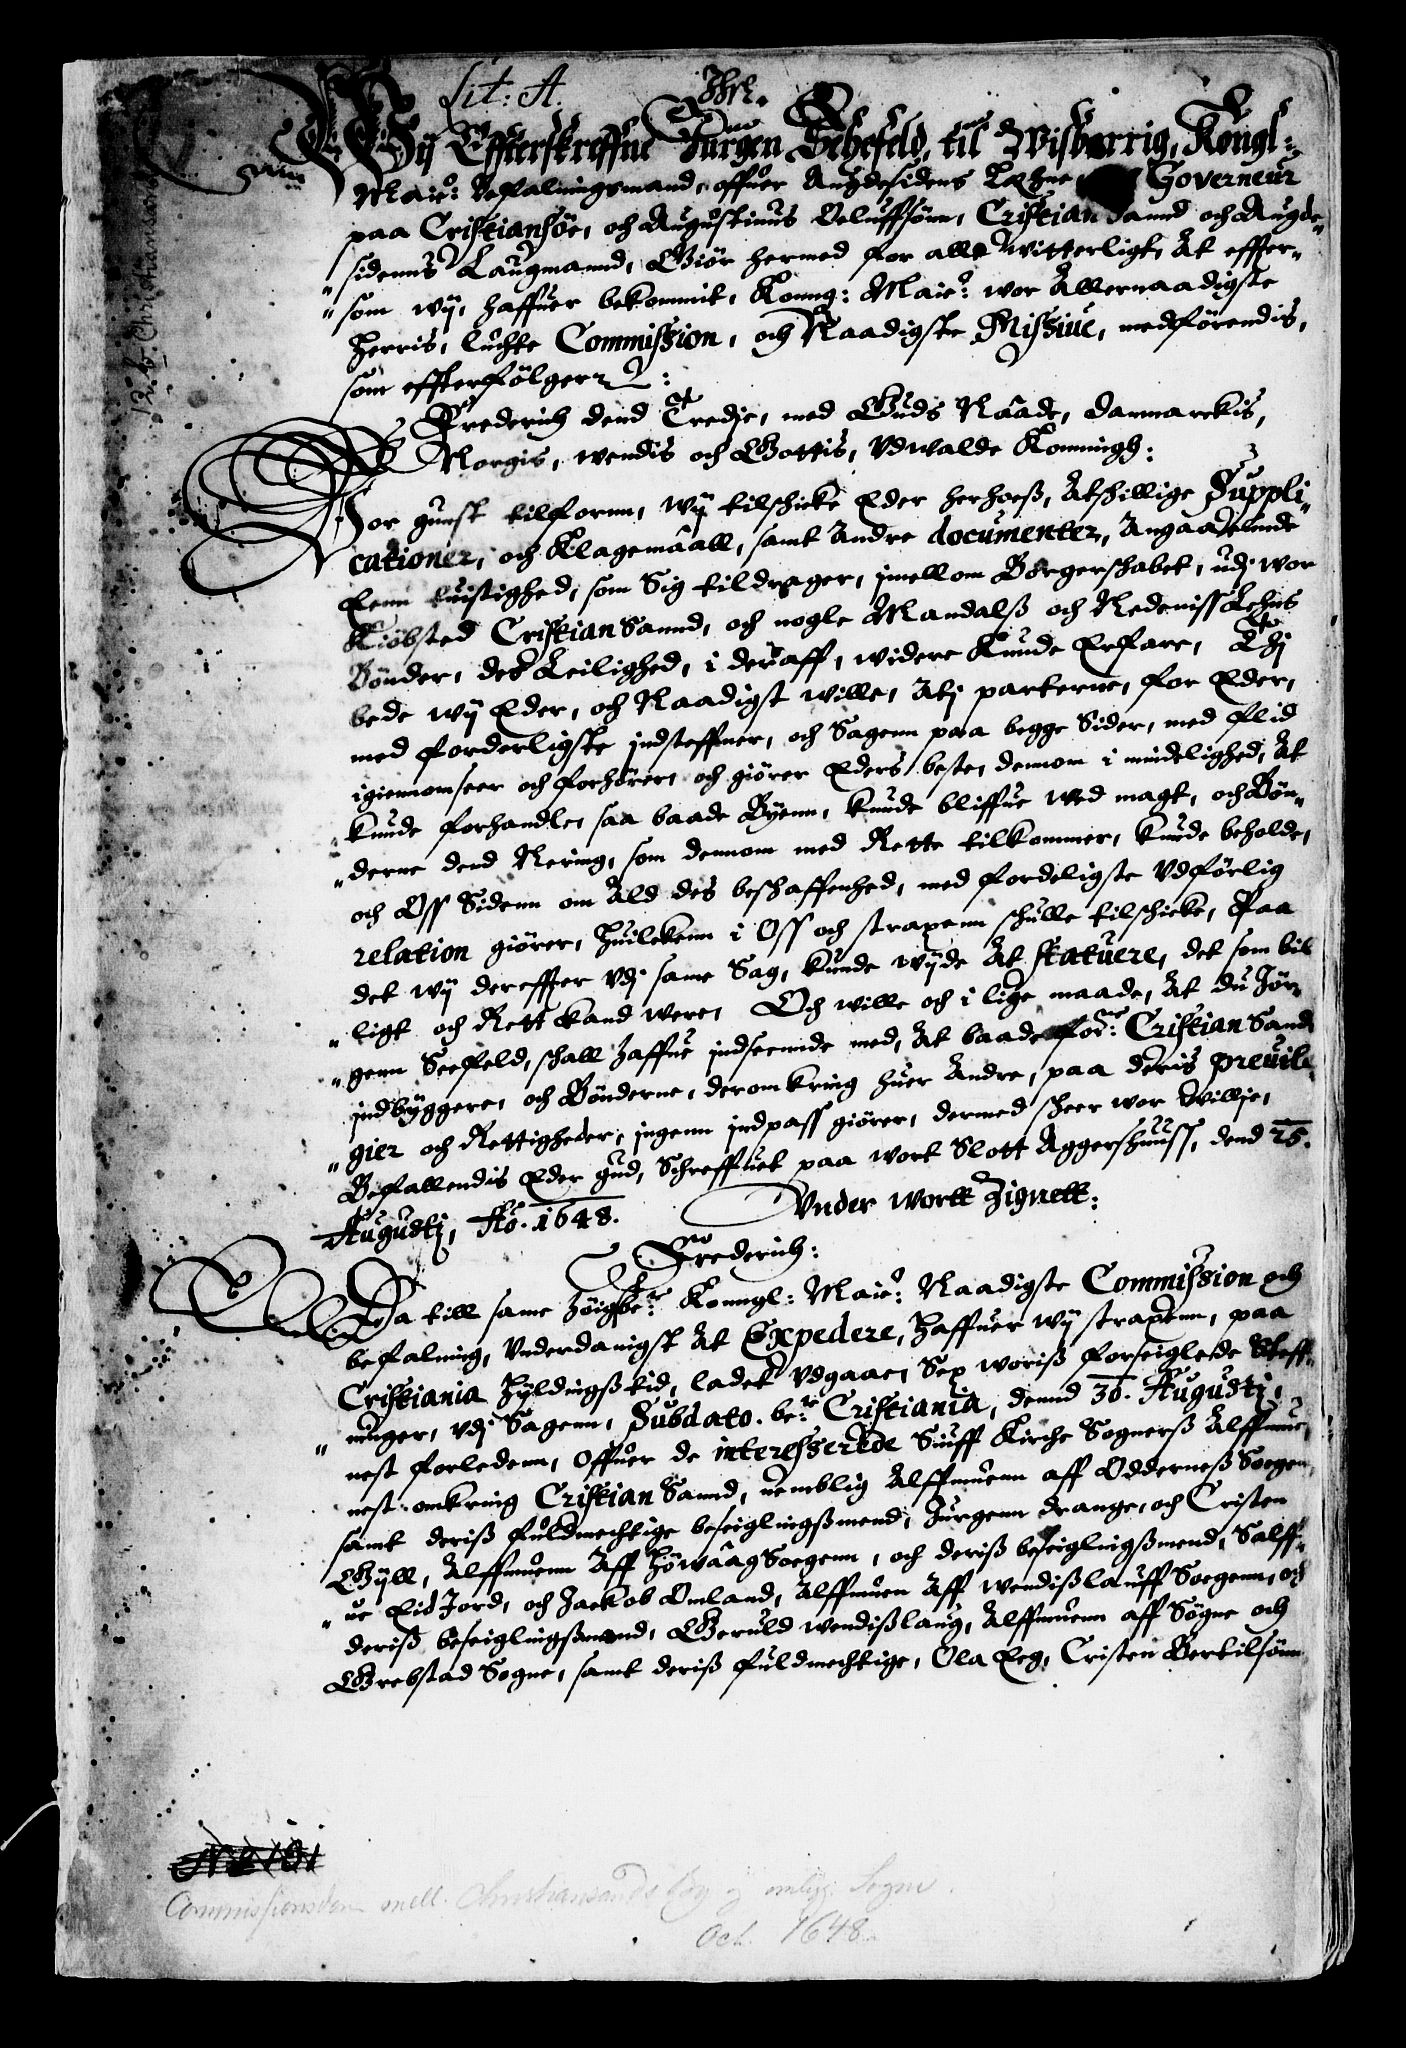 Lit: A.
12. b. Christiansand
Wij Effterskreffne Jürgen Sehefeld, til Wisborrig, Kongl:
Maieᵗ: Befalningsmand, offuer Augdesidens Læhne Governeur
paa Cristiansöe, och Augustinus Oeluffsönn, Cristian Sannd och Augde„
„sidenns Laugmannd, Giör hermed for alle Witterligt, At effter„
„som wij, haffuer bekommit, Konng: Maieᵗ: wor Allernaadigste
Herris, luchte Commission, och Naadigste Missiue, medförendis,
som effterfölger:
Frederich dend Tredje, med Guds Nâade, Danmarckis,
Norgis, wendis och Gottis, Vdwalde Konningh:
Vor gunst tilfornn, Wij tilschicke Eder herhoeß, Atshillige Suppli„
cationer, och Klagemâall, samt Andre documenter, Angaaelende
Eenn tuistighed, som Sig tildrager, imellom Borgerschabet, udj wor
Kiöbsted Cristian Sannd, och nogle Mandalß och Nedeniss Lehns
Bönder, des Leilighed, i deraff, widere Kunde Erfare, Thj
bede wij Eder, och Naadigst wille, Atj parterne, for Eder,
med forderligste indsteffner, och Sagenn paa begge Sider, med flid
igiennomseer och forhörer, och giörer Eders beste, dennom i mindelighed, At
„kunde forhandle, saa baade Byenn, kunde bliffue wed magt, och Bön„
„derne dend Nering, som dennom med Rette tilkommer, kunde beholde,
och Oss Sidenn om Ald des beshaffenhed, med fordeligste Vdförlig
relation giörer, Huilckenn i Oss och straxenn schulle tilschicke, Paa
det wij dereffter Vdj same Sag, kunde wijde At statuere, det som bil
„ligt och Rett kand were, Och wille och i lige maade, At du Jör„
„genn Seefeld, schall haffue indseende med, At baade forⁿᵉ: Cristian Sands
indbyggere, och Bönderne, deromkring huer Andre, paa deris preuile„
„gier och Rettigheder, ingenn indpass giörer, dermed scheer wor Willje,
Befallendis Eder gud, Schreffuet paa wort Slott Aggershuuss, dend 25.
Augustj, Ao. 1648. Vnder wortt Zignett:
Frederich:
Da till same höigbeᵗᵉ: Konngl: Maieᵗ: Naadigste Commission och
befalning, Vnderdanigst At Expedere, Haffuer wij straxenn, paa
Cristiania Hyldingß tid, ladet Vdgaae, Sex woriß forseiglede Steff„
„ninger, Vdj Sagenn, Subdato. beᵗᵉ Cristiania, dennd 30. Augustj,
nest forledenn, Offuer de interesserede Siuff Kirche Sognerß Allffmue,
nest omkring Cristian Sannd, nemblig Allffmuenn aff Odderneß Soegen,
samt deriß fuldmechtige beseiglingßmend, Jürgenn Drange, och Cristen
Gyll, Allffmuenn Aff HöwâagSoegenn, och deriß beseiglingßmend, Salff„
„ue EidJord, och Jackob Omland, Allffmuen Aff wendißlauff Soegenn, och
deriß beseiglingßmennd, Geruld wendißlaug, Allffmuenn aff Sögne och
Grebstad Sogne, samt deriß fuldmechtige, Ola Eeg, Cristen Bertilsönn
Commissionsdom mell. Christiansands By og omligg. Sogne.
Oct. 1648.